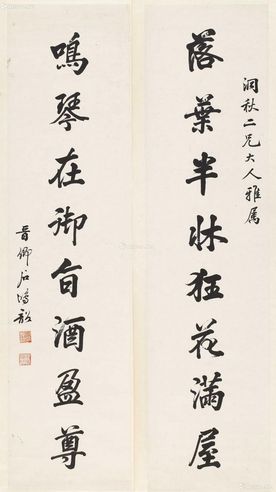 洞秋二兄大人雅属
落葉半牀狂花滿屋
鳴琴在御旨酒盈尊
晋卿石鴻韶